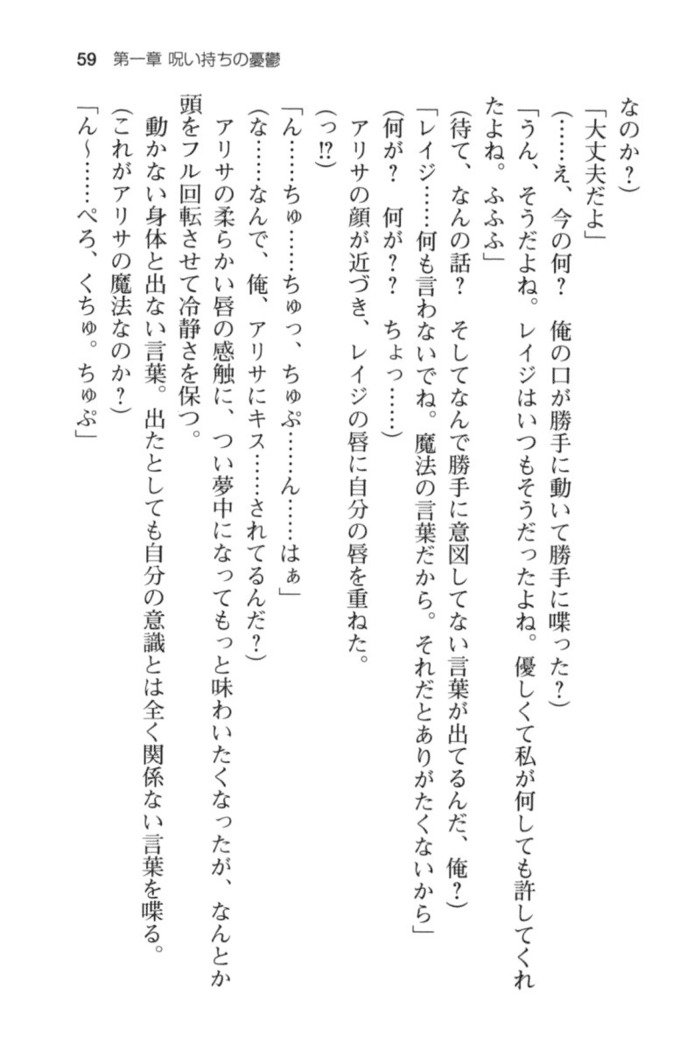 59 第一章 呪い持ちの憂鬱
なのか？)
「大丈夫だよ」
(……え、今の何？　俺の口が勝手に動いて勝手に喋った？)
「うん、そうだよね。レイジはいつもそうだったよね。優しくて私が何しても許してくれ
たよね。ふふふ」
(待て、なんの話？　そしてなんで勝手に意図してない言葉が出てるんだ、俺？)
「レイジ……何も言わないでね。魔法の言葉だから。それだとありがたくないから」
(何が？　何が？？　ちょっ……)
アリサの顔が近づき、レイジの唇に自分の唇を重ねた。
(っ!?)
「ん……ちゅ……ちゅっ、ちゅぷ……ん……はぁ」
(な……なんで、俺、アリサにキス……されてるんだ？)
アリサの柔らかい唇の感触に、つい夢中になってもっと味わいたくなったが、なんとか
頭をフル回転させて冷静さを保つ。
動かない身体と出ない言葉。出たとしても自分の意識とは全く関係ない言葉を喋る。
(これがアリサの魔法なのか？)
「ん〜……ぺろ、くちゅ。ちゅぷ」